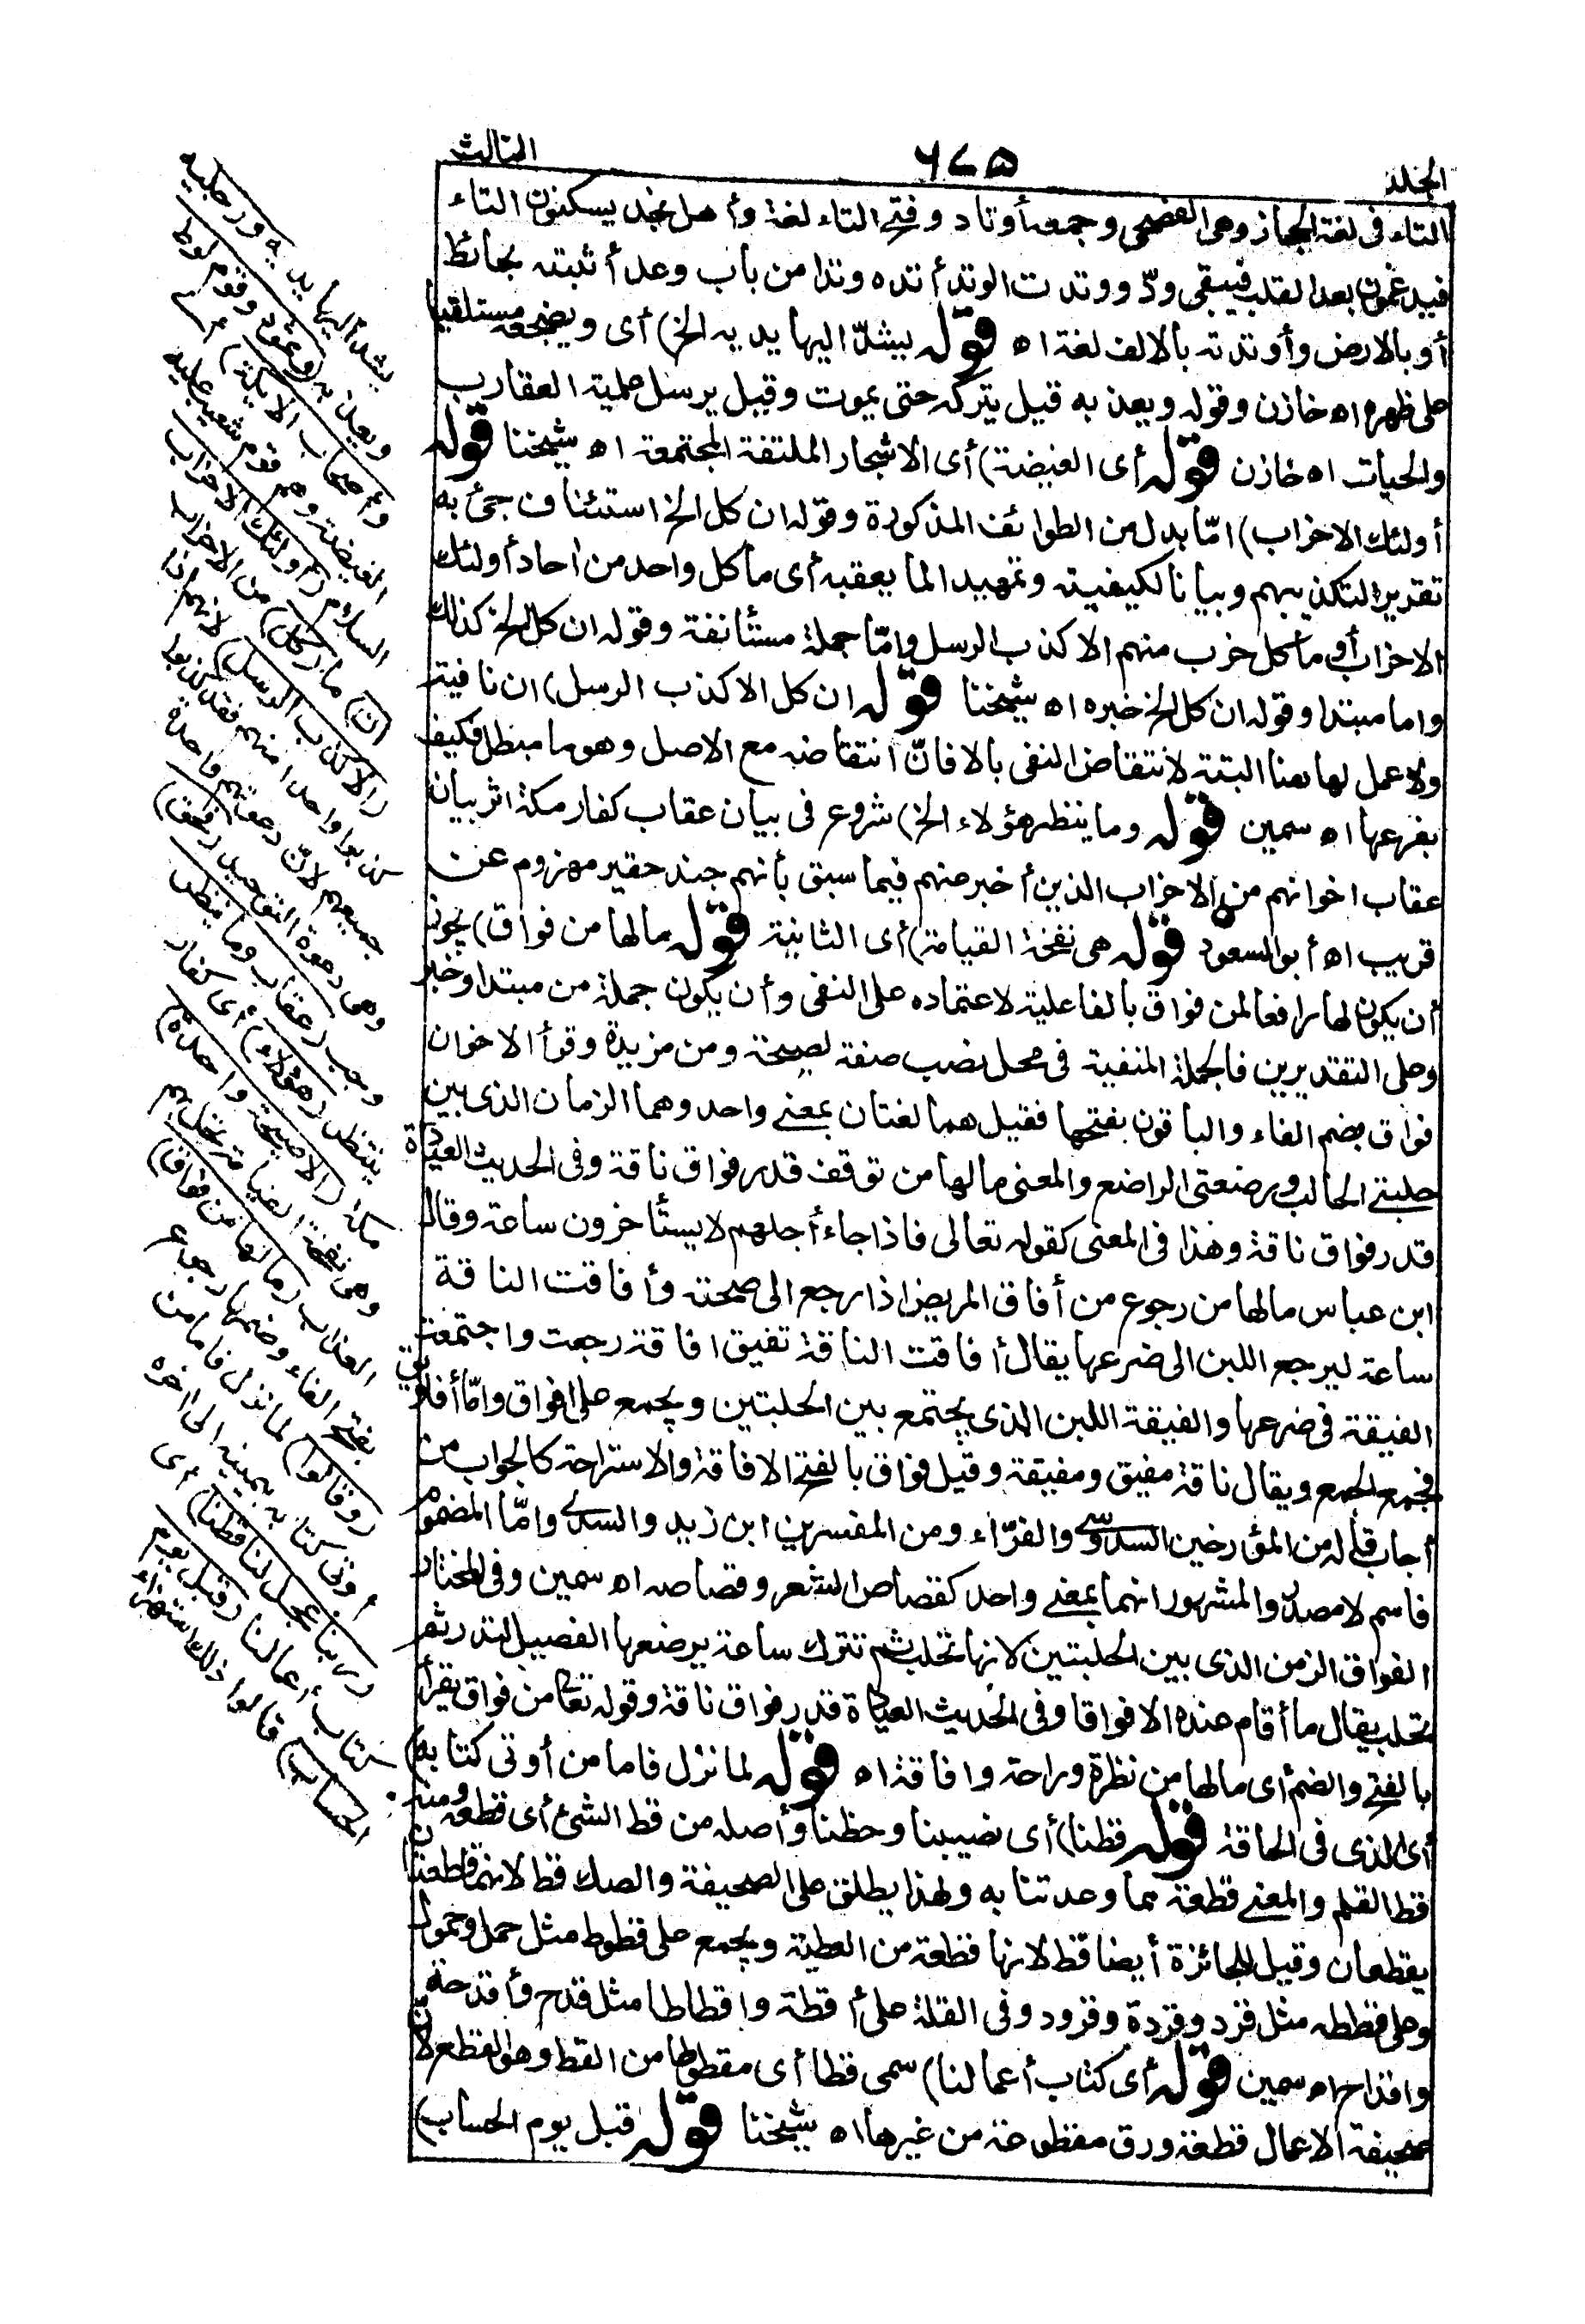 الجلد
٦٢٥
الثالث
التاء فى لغة الحجاز وهى الفصحى وجمعه أوتاد وفتح التاء لغة وأهل نجد يسكنون التاء
فيدغمون بعد القلب فيبقى ودّ ووتدت الوتد أتده وتدا من باب وعد أثبته بحائط
أو بالارض وأوتدته بالالف لغة اه قوله يشدّ اليها يديه الخ) أى ويضجعه مستلقيا
على ظهره اه خازن وقوله ويعذبه قيل يتركه حتى يموت وقيل يرسل عليه العقارب
والحيات اه خازن قوله أى الغيضة) أى الاشجار الملتفة المجتمعة اه شيخنا قوله
أولئك الاحزاب) امّا بدل من الطوائف المذكورة وقوله ان كل الخ استئناف جئ به
تقرير التكذيبهم وبيانا لكيفيته وتمهيدا لما يعقبه أى ما كل واحد من احاد أولئك
الاحزاب أو ما كل حزب منهم الا كذب الرسل وامّا جملة مستأنفة وقوله ان كل الخ كذلك
واما مبتدا وقوله ان كل الخ خبره اه شيخنا قوله ان كل الا كذب الرسل) ان نافية
ولا عمل لها هنا البتة لانتقاض النفى بالا فانّ انتقاضه مع الاصل وهو ما مبطل فكيف
بفرعها اه سمين قوله وما ينظر هؤلاء الخ) شروع فى بيان عقاب كفار مكة اثر بيان
عقاب اخوانهم من الاحزاب الذين أخبر عنهم فيما سبق بأنهم جند حقير مهزوم عن
قريب اه أبو السعود قوله هى نفخة القيامة) أى الثانية قوله مالها من فواق) يجوز
أن يكون لها رافعا لمن فواق بالفاعلية لاعتماده على النفى وأن يكون جملة من مبتدا وخبر
وعلى التقديرين فالجملة المنفية فى محل نصب صفة لصيحة ومن مزيدة وقرأ الاخوان
فواق بضم الفاء والباقون بفتحها فقيل هما لغتان بمعنى واحد وهما الزمان الذى بين
حلبتى الحالب ورضعتى الراضع والمعنى مالها من توقف قدر فواق ناقة وفى الحديث العيادة
قدر فواق ناقة وهذا فى المعنى كقوله تعالى فاذا جاء أجلهم لا يستأخرون ساعة وقال
ابن عباس مالها من رجوع من أفاق المريض اذا رجع الى صحته وأفاقت الناقة
ساعة ليرجع اللبن الى ضرعها يقال أفاقت الناقة تفيق افاقة رجعت واجتمعت
الفيقة فى ضرعها والفيقة اللبن الذى يجتمع بين الحلبتين ويجمع على افواق وامّا أفاويق
فجمع الجمع ويقال ناقة مفيق ومفيقة وقيل فواق بالفتح الافاقة والاستراحة كالجواب من
أجاب قاله من المؤرخين السدوسى والفرّاء ومن المفسرين ابن زيد والسدى وامّا المضموم
فاسم لا مصدر والمشهور انهما بمعنى واحد كقصاص الشعر وقصاصه اه سمين وفى المختار
الفواق الزمن الذى بين الحلبتين لانها تحلب ثم تترك ساعة يرضعها الفصيل لتدر ثم
تحلب يقال ما أقام عنده الا فواقا وفى الحديث العيادة قدر فواق ناقة وقوله تعالى من فواق يقرأ
بالفتح والضم أى مالها من نظرة وراحة وافاقة اه قوله لما نزل فاما من أوتى كتابه)
أى الذى فى الحاقة قوله قطنا) أى نصيبنا وحظنا وأصله من قط الشئ أى قطعه ومنه
قط القلم والمعنى قطعة مما وعدتنا به ولهذا يطلق على الصحيفة والصك قط لانهما قطعتان
يقطعان وقيل للجائزة أيضا قط لانها قطعة من العطية ويجمع على قطوط مثل حمل وحمول
وعلى قططه مثل قرد وقردة وقرود وفى القلة على أقطة واقطاطا مثل قدح وأقدحة
واقداح اه سمين قوله أى كتاب أعمالنا) سمى قطا أى مقطوطا من القط وهو القطع لانّ
صحيفة الاعمال قطعة ورق مقطوعة من غيرها اه شيخنا قوله قبل يوم الحساب)
يشد اليها يديه ورجليه
ويعذبه (وثمود وقوم لوط
وأصحاب الايكة) أى
الغيضة وهم قوم شعيب عليه
السلام (أولئك الاحزاب
ان) ما (كل) من الاحزاب
(الا كذب الرسل) لانهم اذا
كذبوا واحدا منهم فقد كذبوا
جميعهم لانّ دعوتهم واحدة
وهى دعوة التوحيد (فحق)
وجب (عقاب وما ينظر)
ينتظر (هؤلاء) أى كفار
مكة (الا صيحة واحدة)
وهى نفخة القيامة تحل بهم
العذاب (مالها من فواق)
بفتح الفاء وضمها رجوع
(وقالوا) لما نزل فاما من
أوتى كتابه بيمينه الى اخره
(ربنا عجل لنا قطنا) أى
كتاب أعمالنا (قبل يوم
الحساب) قالوا ذلك استهزاء